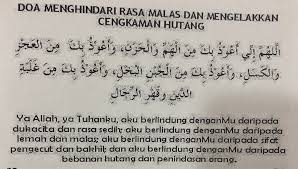 DOA MENGHINDARI RASA MALAS DAN MENGELAKKAN
CENGKAMAN HUTANG
اللَّهُمَّ إِنِّي أَعُوْذُ بِكَ مِنَ الْهَمِّ وَالْحَزَنِ، وَأَعُوْذُ بِكَ مِنَ الْعَجْزِ
وَالْكَسَلِ، وَأَعُوْذُ بِكَ مِنَ الْجُبْنِ الْبُخْلِ، وَأَعُوْذُ بِكَ مِنْ غَلَبَةِ
الدَّيْنِ وَقَهْرِ الرِّجَالِ
Ya Allah, ya Tuhanku, aku berlindung denganMu daripada
dukacita dan rasa sedih; aku berlindung denganMu daripada
lemah dan malas; aku berlindung denganMu daripada sifat
pengecut dan bakhil; dan aku berlindung denganMu daripada
bebanan hutang dan penindasan orang.